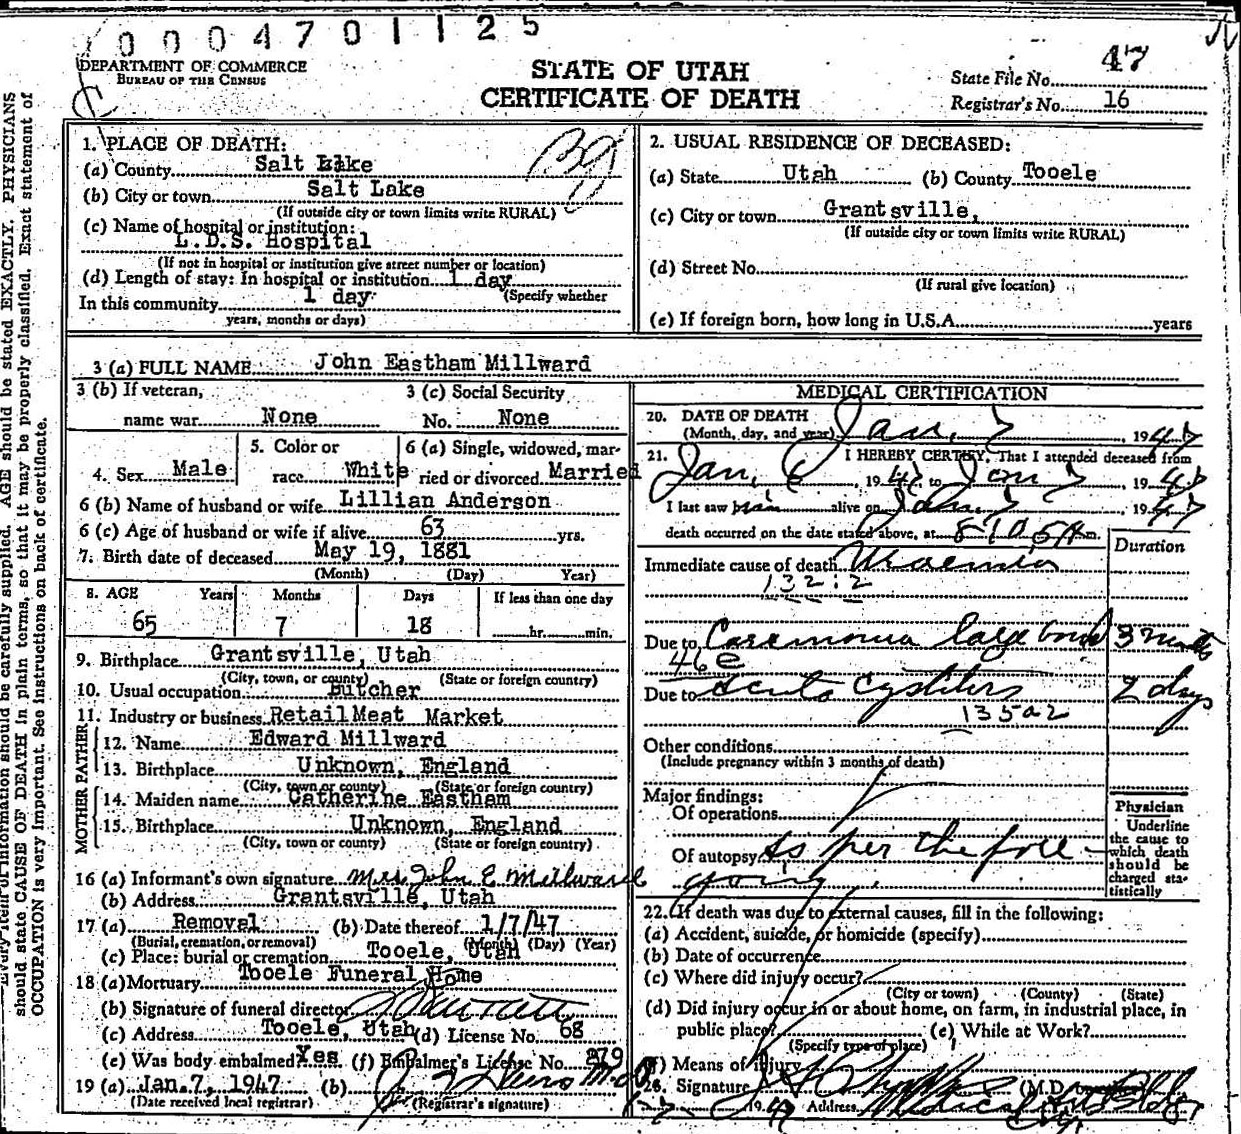 0004701125
DEPARTMENT OF COMMERCE
BUREAU OF THE CENSUS
STATE OF UTAH
CERTIFICATE OF DEATH
State File No. 47
Registrar's No. 16
1. PLACE OF DEATH:
(a) County Salt Lake
(b) City or town Salt Lake
(If outside city or town limits write RURAL)
(c) Name of hospital or institution:
L.D.S. Hospital
(If not in hospital or institution give street number or location)
(d) Length of stay: In hospital or institution 1 day
(Specify whether
In this community 1 day
years, months or days)
2. USUAL RESIDENCE OF DECEASED:
(a) State Utah (b) County Tooele
(c) City or town Grantsville,
(If outside city or town limits write RURAL)
(d) Street No.
(If rural give location)
(e) If foreign born, how long in U.S.A. years
3 (a) FULL NAME John Eastham Millward
3 (b) If veteran, 3 (c) Social Security
name war None No. None
4. Sex Male 5. Color or race White 6 (a) Single, widowed, married or divorced Married
6 (b) Name of husband or wife Lillian Anderson
6 (c) Age of husband or wife if alive 63 yrs.
7. Birth date of deceased May 19, 1881
(Month) (Day) Year)
8. AGE Years Months Days If less than one day
65 7 18 hr. min.
9. Birthplace Grantsville, Utah
(City, town, or county) (State or foreign country)
10. Usual occupation Butcher
11. Industry or business Retail Meat Market
FATHER
12. Name Edward Millward
13. Birthplace Unknown, England
(City, town or county) (State or foreign country)
MOTHER
14. Maiden name Catherine Eastham
15. Birthplace Unknown, England
(City, town or county) (State or foreign country)
16 (a) Informant's own signature Mrs John E Millward
(b) Address Grantsville, Utah
17 (a) Removal (b) Date thereof 1/7/47
(Burial, cremation, or removal) (Month) (Day) (Year)
(c) Place: burial or cremation Tooele, Utah
18 (a) Mortuary Tooele Funeral Home
(b) Signature of funeral director
(c) Address Tooele, Utah (d) License No. 68
(e) Was body embalmed? Yes (f) Embalmer's License No. 279
19 (a) Jan. 7, 1947 (b)
(Date received local registrar) (Registrar's signature)
MEDICAL CERTIFICATION
20. DATE OF DEATH
(Month, day, and year) Jan. 7, 1947
21. I HEREBY CERTIFY, That I attended deceased from
Jan, 6, 1947 to Jan 7, 1947
I last saw him alive on Jan 7, 1947
death occurred on the date stated above, at 8:05 A m.
Duration
Immediate cause of death Uraemia
132:2
Due to Carcinoma large bowel 3 months
46e
Due to acute cystitis 2 days
135a2
Other conditions
(Include pregnancy within 3 months of death)
Major findings:
Of operations
Of autopsy As per the fore-
going.
Physician
Underline
the cause to
which death
should be
charged sta-
tistically
22. If death was due to external causes, fill in the following:
(a) Accident, suicide, or homicide (specify)
(b) Date of occurrence
(c) Where did injury occur?
(City or town) (County) (State)
(d) Did injury occur in or about home, on farm, in industrial place, in
public place? (e) While at Work?
(Specify type of place)
(f) Means of injury
Signature (M.D.
1-7 1947 Address Medical Arts Bldg,
should be carefully supplied. AGE should be stated EXACTLY. PHYSICIANS
should state CAUSE OF DEATH in plain terms, so that it may be properly classified. Exact statement of
OCCUPATION is very important. See instructions on back of certificate.